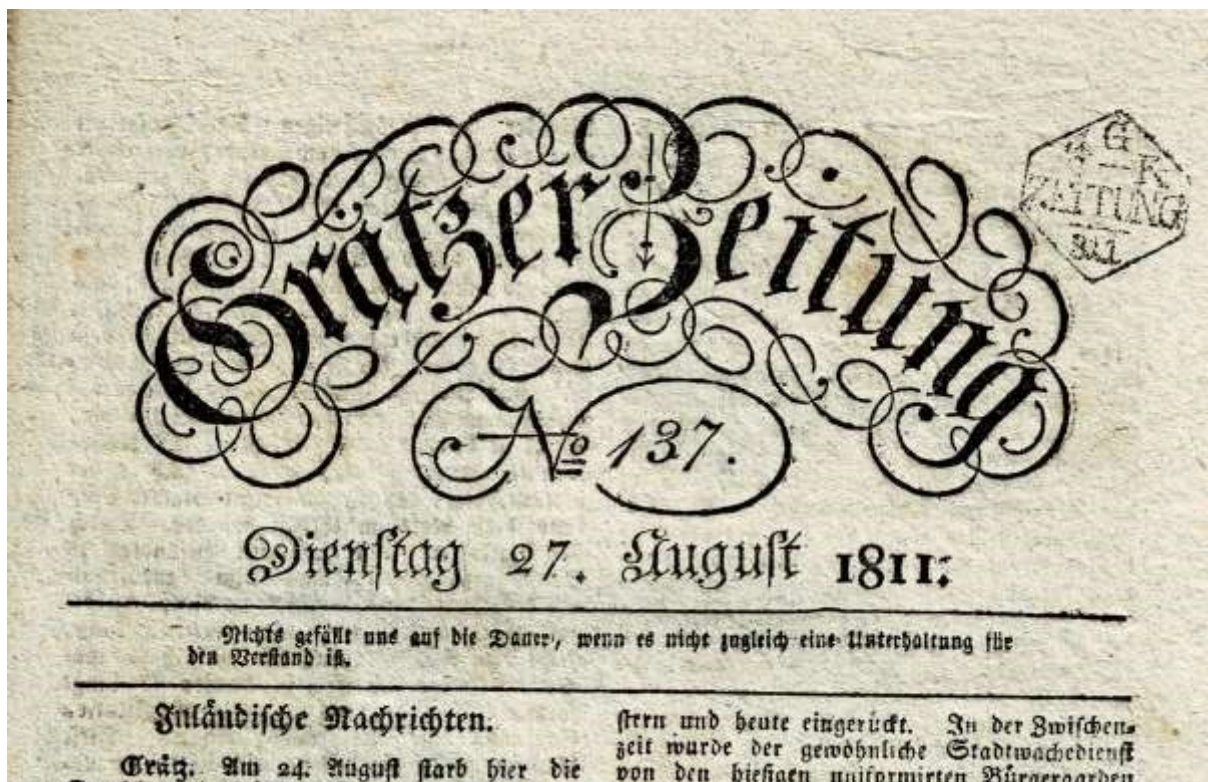 Grätzer Zeitung
G
K
ZEITUNG
No 137.
Dienstag 27. August 1811.
Nichts gefällt uns auf die Dauer, wenn es nicht zugleich eine Unterhaltung für
den Verstand ist.
Inländische Nachrichten.
Grätz. Am 24. August starb hier die
stern und heute eingerückt. In der Zwischen-
zeit wurde der gewöhnliche Stadtwachedienst
von den hiesigen uniformirten Bürgergarden